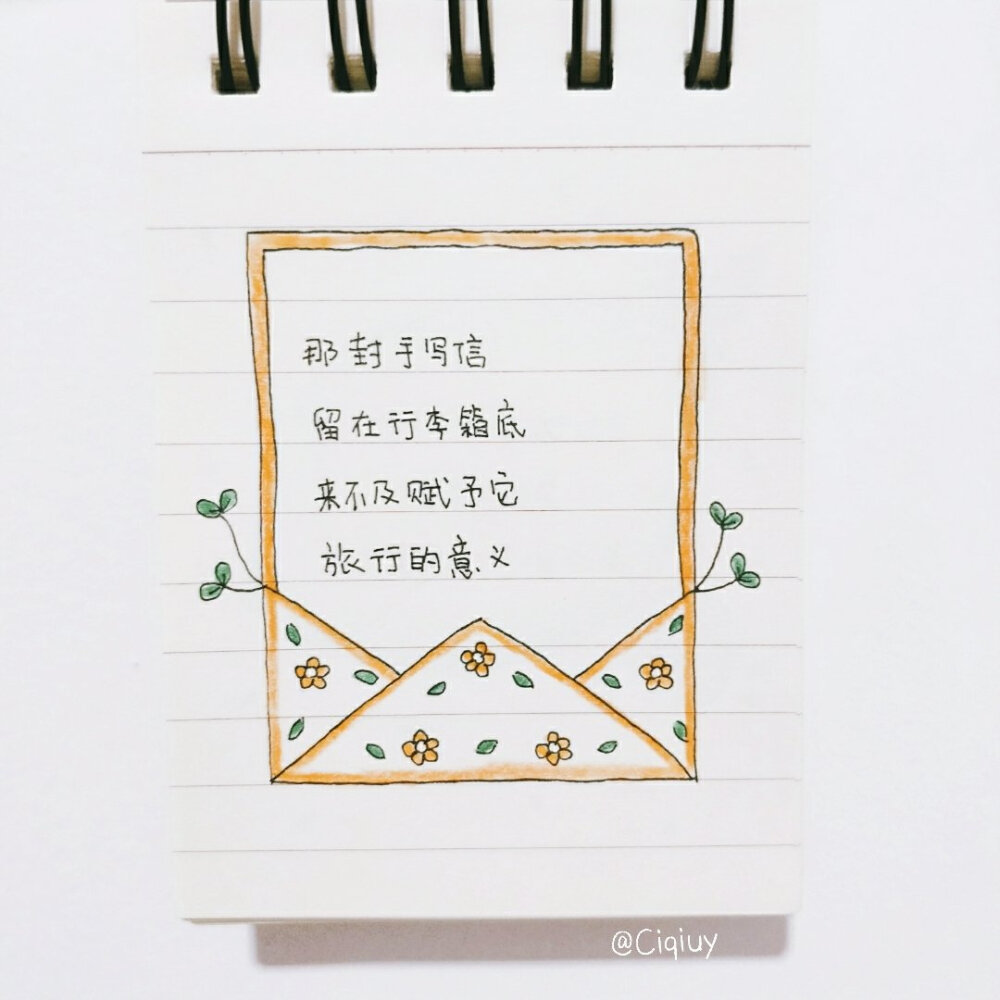 那封手写信
留在行李箱底
来不及赋予它
旅行的意义
@Ciqiuy